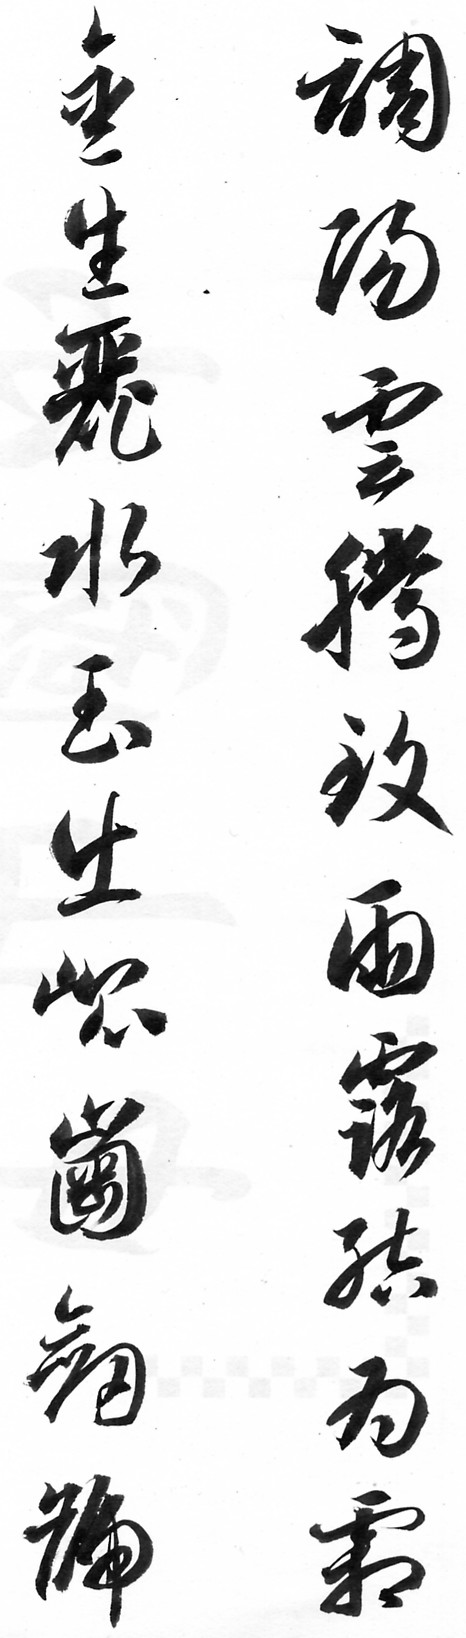 調陽雲騰致雨露結為霜
金生麗水玉出崑崗劒號